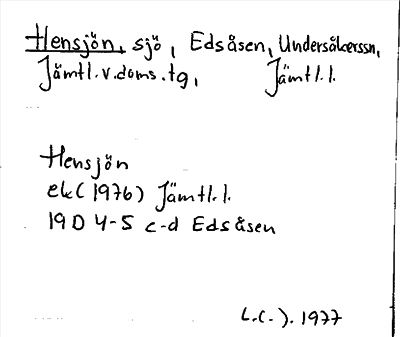 Hensjön, sjö, Edsåsen, Undersåkerssn,
Jämtl.v.doms.tg, Jämtl.l.
Hensjön
ek(1976) Jämtl.l.
19D 4-5 c-d Edsåsen
L.(-). 1977